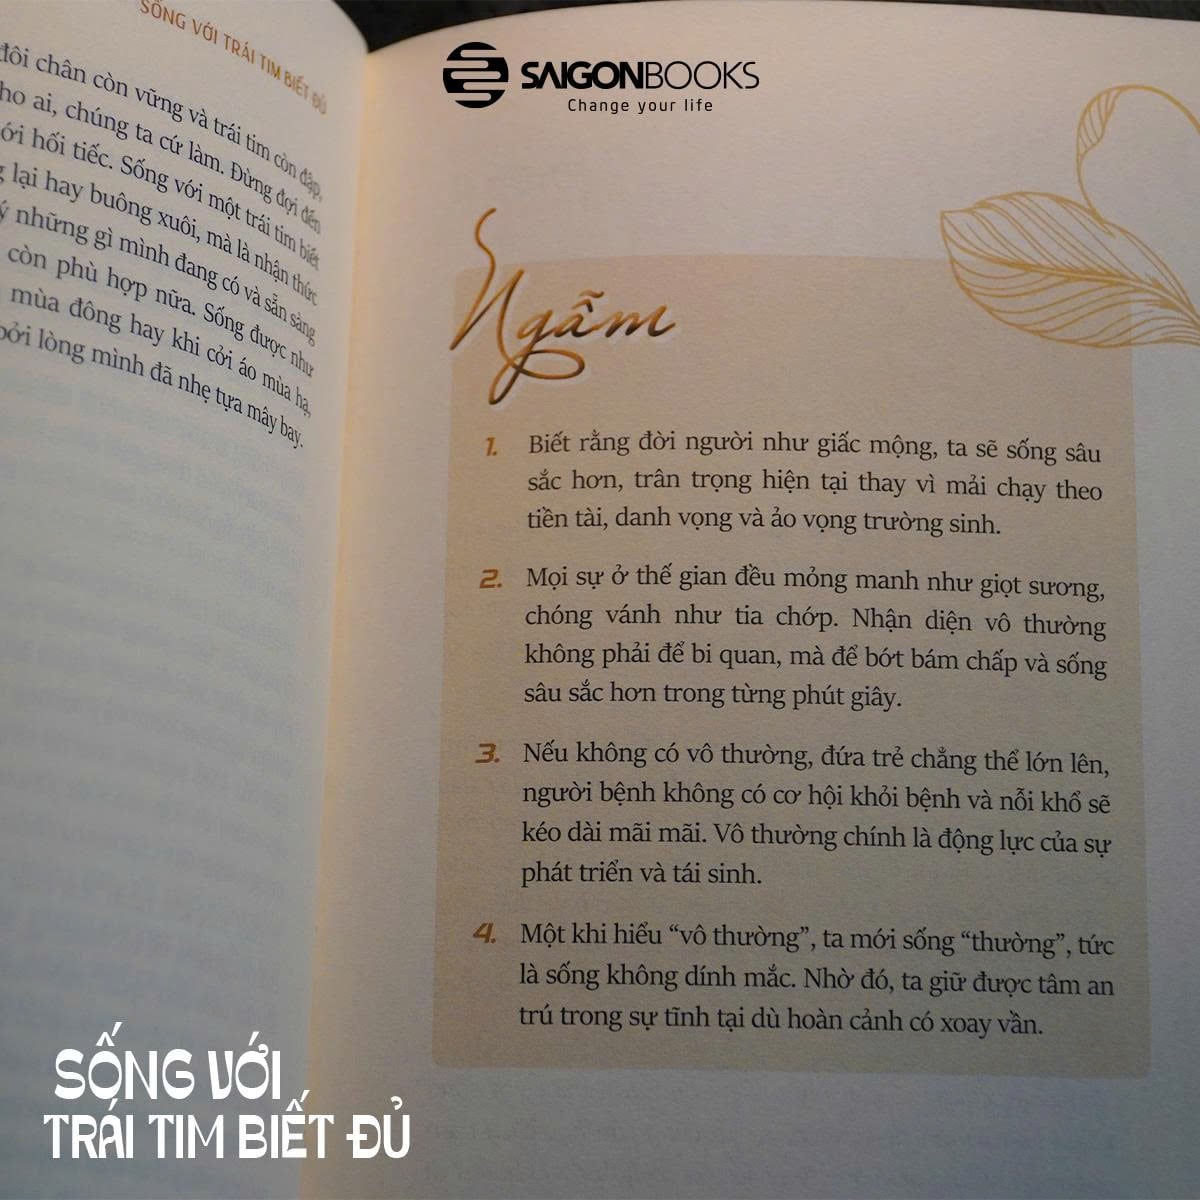 SỐNG VỚI TRÁI TIM BIẾT ĐỦ
đôi chân còn vững và trái tim còn đập,
ho ai, chúng ta cứ làm. Đừng đợi đến
ới hối tiếc. Sống với một trái tim biết
lại hay buông xuôi, mà là nhận thức
ý những gì mình đang có và sẵn sàng
còn phù hợp nữa. Sống được như
mùa đông hay khi cởi áo mùa hạ,
bởi lòng mình đã nhẹ tựa mây bay.
SAIGONBOOKS
Change your life
Ngẫm
1. Biết rằng đời người như giấc mộng, ta sẽ sống sâu
sắc hơn, trân trọng hiện tại thay vì mải chạy theo
tiền tài, danh vọng và ảo vọng trường sinh.
2. Mọi sự ở thế gian đều mỏng manh như giọt sương,
chóng vánh như tia chớp. Nhận diện vô thường
không phải để bi quan, mà để bớt bám chấp và sống
sâu sắc hơn trong từng phút giây.
3. Nếu không có vô thường, đứa trẻ chẳng thể lớn lên,
người bệnh không có cơ hội khỏi bệnh và nỗi khổ sẽ
kéo dài mãi mãi. Vô thường chính là động lực của sự
phát triển và tái sinh.
4. Một khi hiểu “vô thường”, ta mới sống “thường”, tức
là sống không dính mắc. Nhờ đó, ta giữ được tâm an
trú trong sự tĩnh tại dù hoàn cảnh có xoay vần.
SỐNG VỚI
TRÁI TIM BIẾT ĐỦ